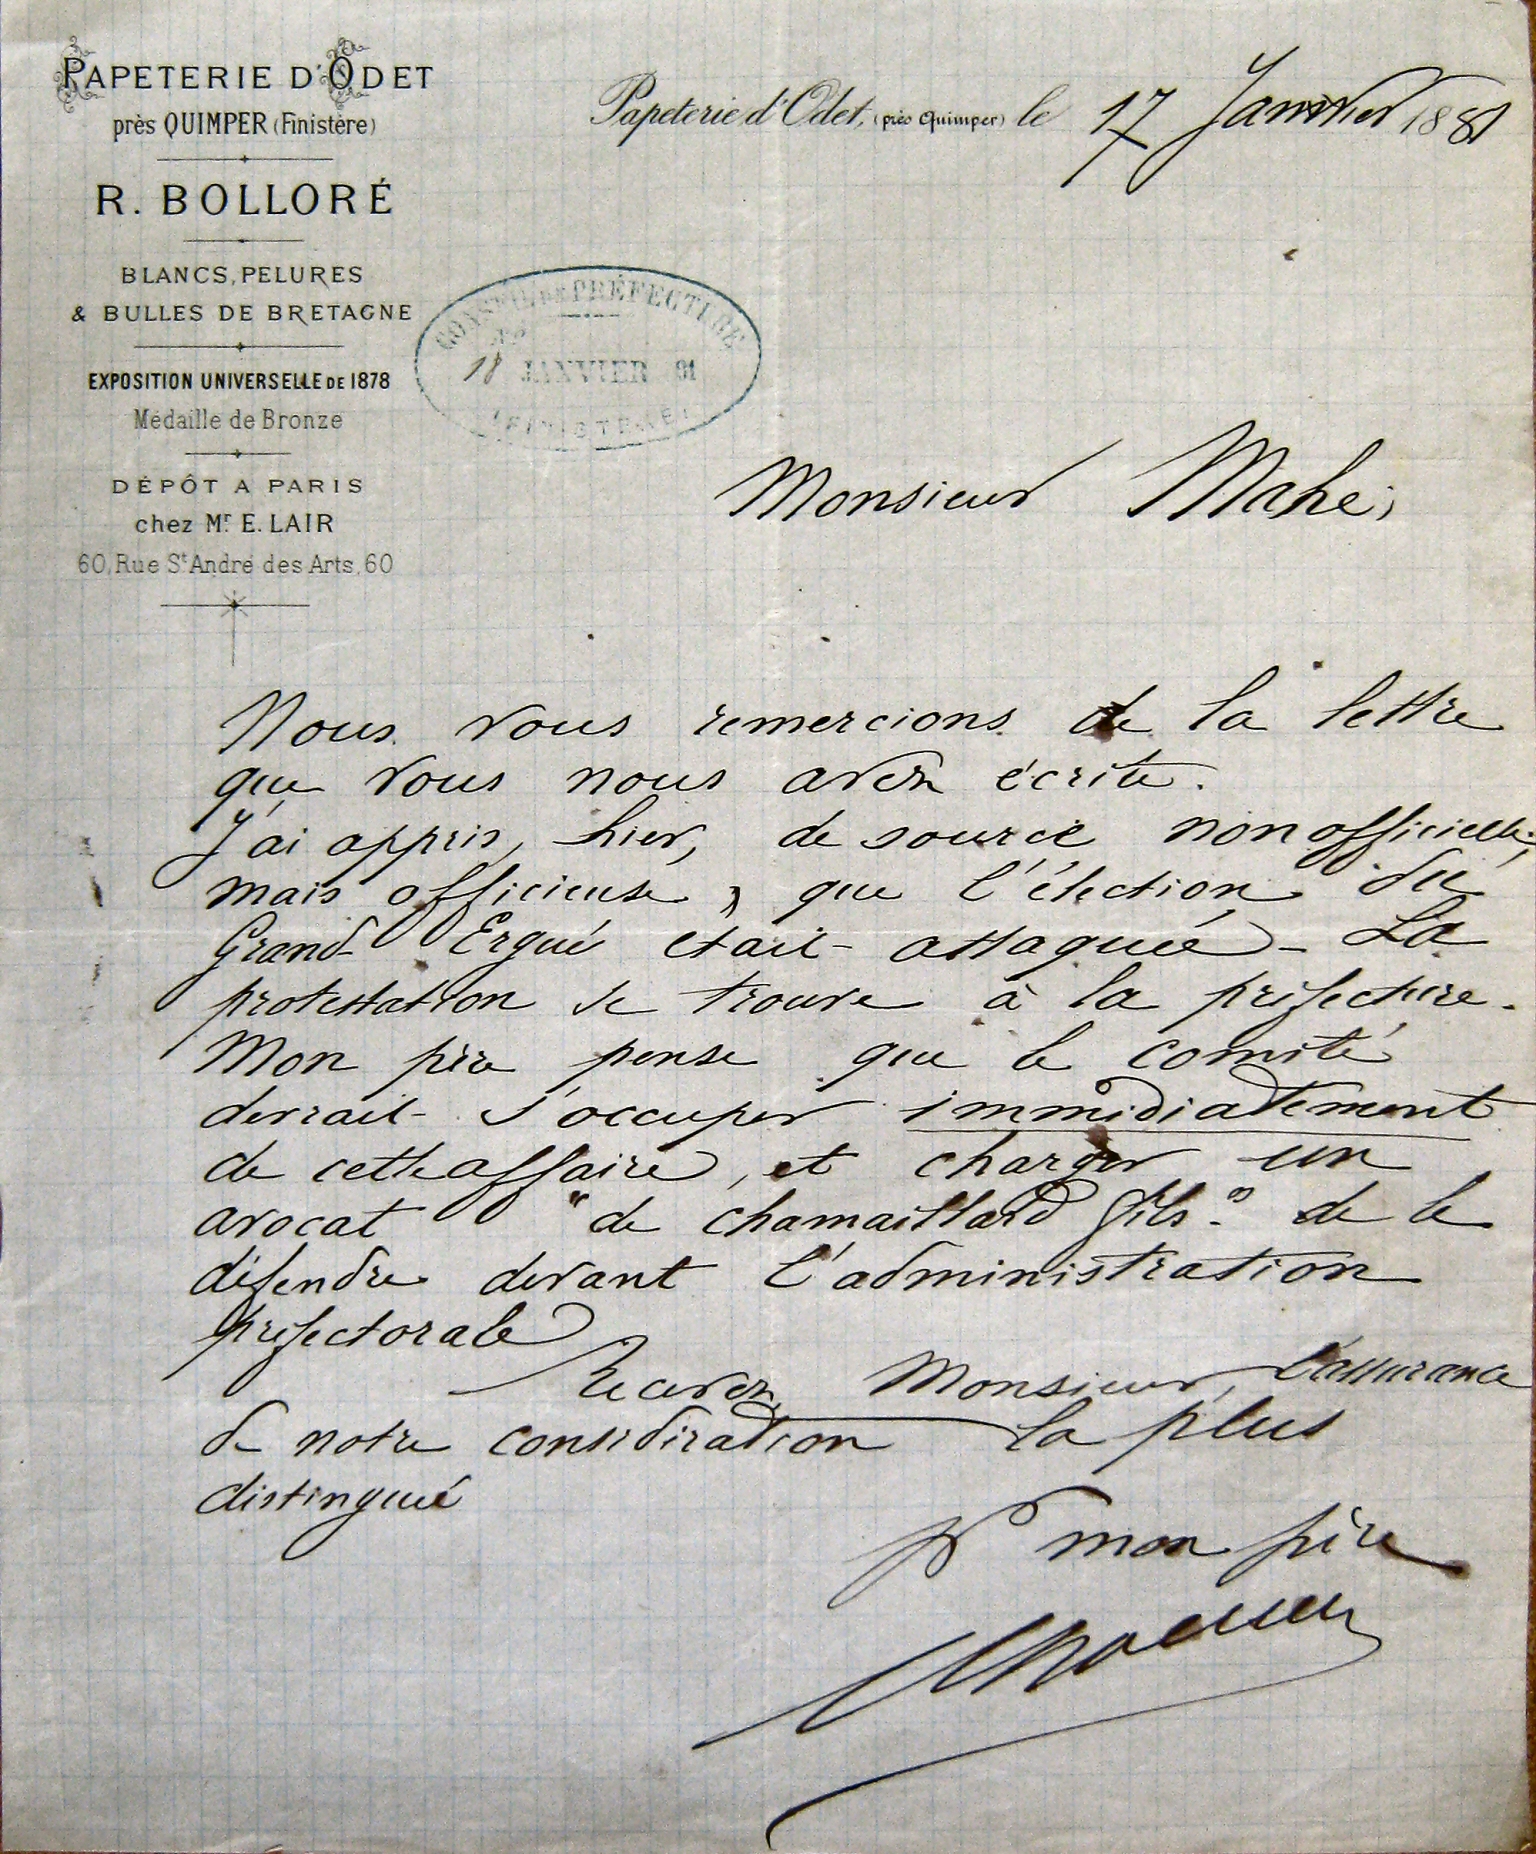 PAPETERIE D'ODET
près QUIMPER (Finistère)
R. BOLLORÉ
BLANCS, PELURES
& BULLES DE BRETAGNE
EXPOSITION UNIVERSELLE DE 1878
Médaille de Bronze
DÉPÔT A PARIS
chez Mr E. LAIR
60, Rue St André des Arts, 60
Papeterie d'Odet, (près Quimper) le 17 Janvier 1881
CONSEIL DE PRÉFECTURE
18 JANVIER 81
(FINISTERE)
Monsieur Mahé,
Nous vous remercions de la lettre
que vous nous avez écrite.
J'ai appris, hier, de source non officielle,
mais officieuse, que l'élection du
Grand Ergué était attaquée - La
protestation se trouve à la préfecture.
Mon père pense que le comité
devrait s'occuper immédiatement
de cette affaire, et charger un
avocat "de Chamaillard fils." de le
défendre devant l'administration
préfectorale
Recevez, Monsieur, l'assurance
de notre considération la plus
distingué
Pr mon père